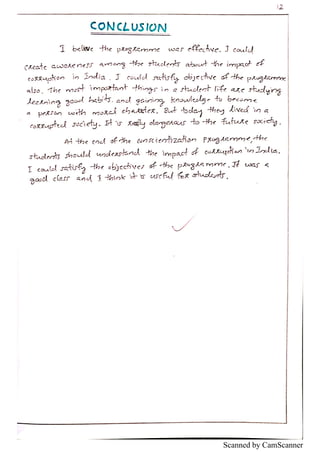 12
CONCLUSION
I believe the programme was effective. I could
create awareness among the students about the impact of
corruption in India. I could satisfy objective of the programme
also. The most important things in a student life are studying
learning good habits. and gaining knowledge to become
a person with moral character. But today they lived in a
corrupted society. It is really dangerous to the future society.
At the end of the conscientization programme, the
students should understand the impact of corruption in India.
I could satisfy the objectives of the programme. It was a
good class and I think it is useful for students.
Scanned by CamScanner